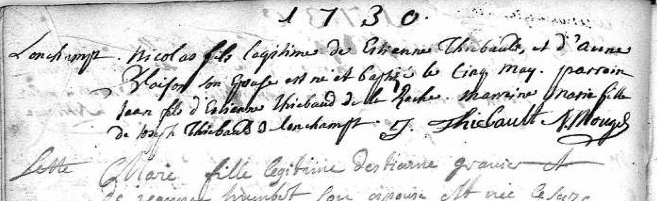 1730.
Lonchampt. Nicolas fils legitime de Estienne Thiebauld, et d'Anne
son Epouse est né et baptisé le Cinq may. parrain
Jean fils d'Estienne Thiebaud de la Roche. marrine marie fille
de Joseph Thiebauld d lonchampt. J. Thiebault
Lette Marie fille legitime destienne gravier et
de jeanne humbert son espouse est née le